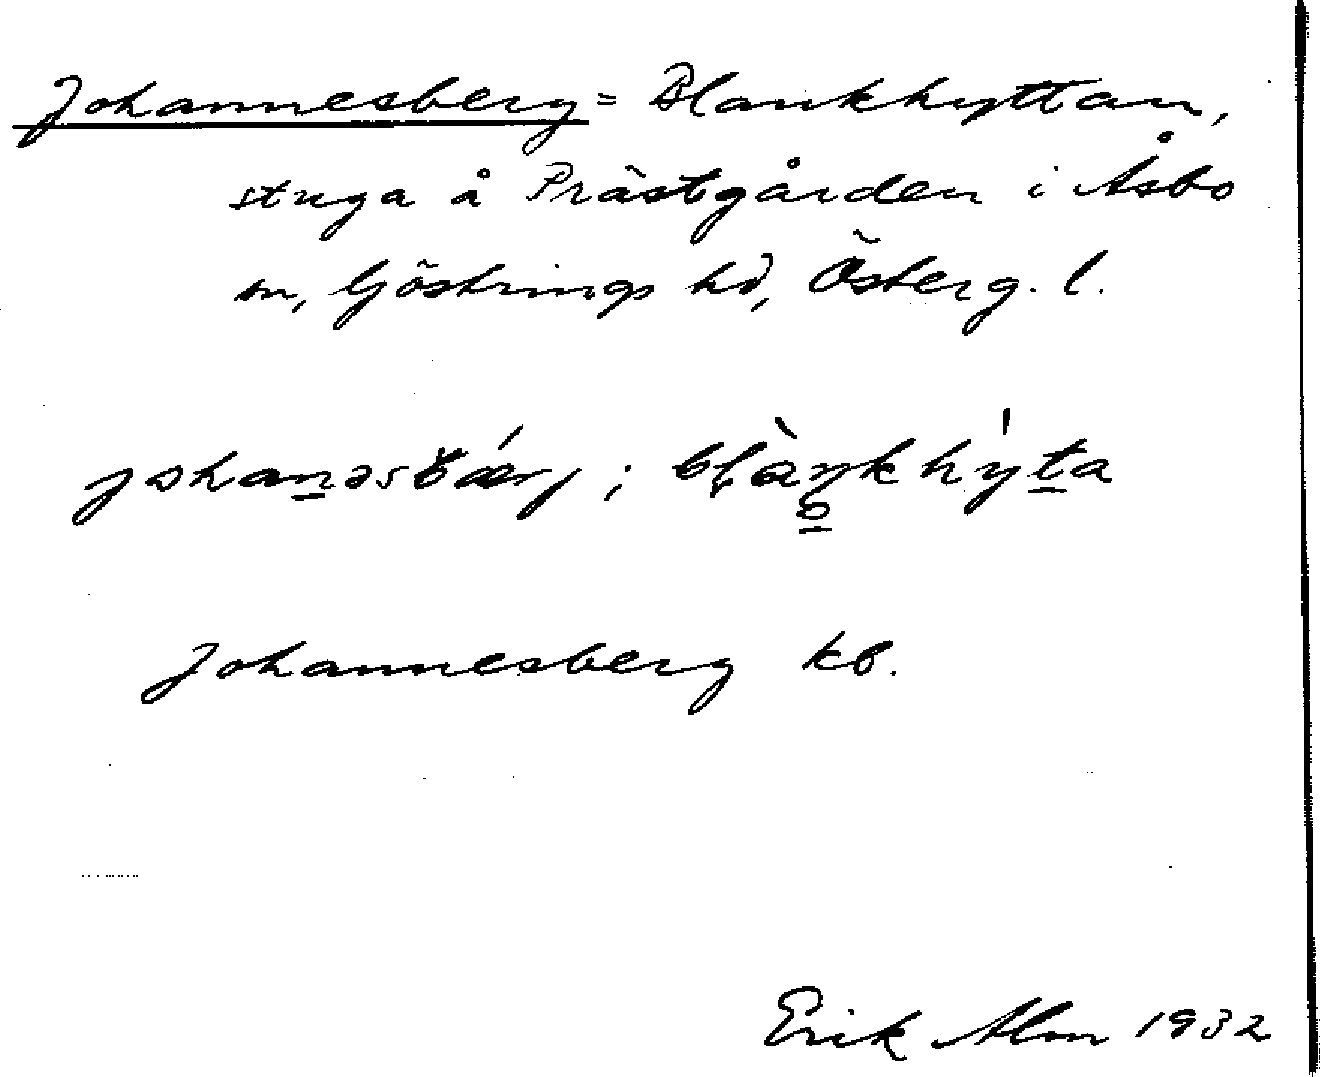 Johannesberg = Blankhyttan,
stuga å Prästgården i Åsbo
sn, Göstrings hd, Österg. l.
johanəsbǽrj; blàŋkhy̍ta
Johannesberg kb.
Erik Alm 1932